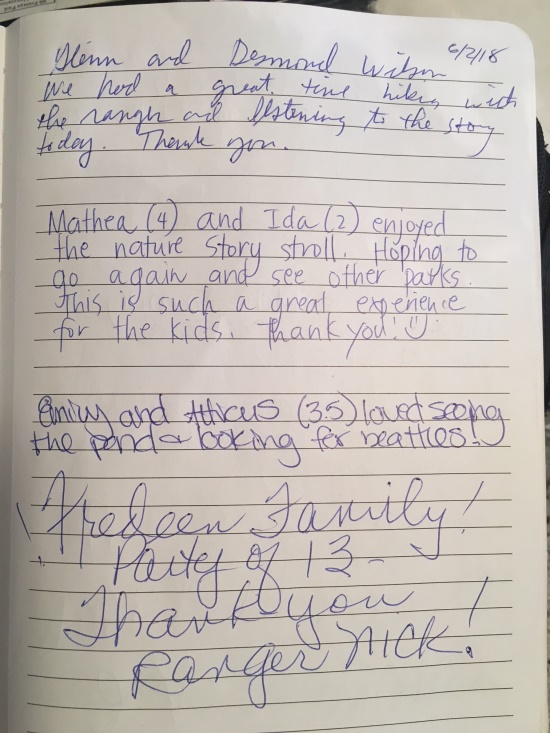 Glenn and Desmond Wilson 6/2/18
We had a great time hiking with
the ranger and listening to the story
today. Thank you.
Mathea (4) and Ida (2) enjoyed
the nature story stroll. Hoping to
go again and see other parks.
This is such a great experience
for the kids. Thank you!
and Atticus (3.5) loved seeing
the pond & looking for beatles!
Fredeen Family!
Party of 13 -
Thank you
Ranger Nick!